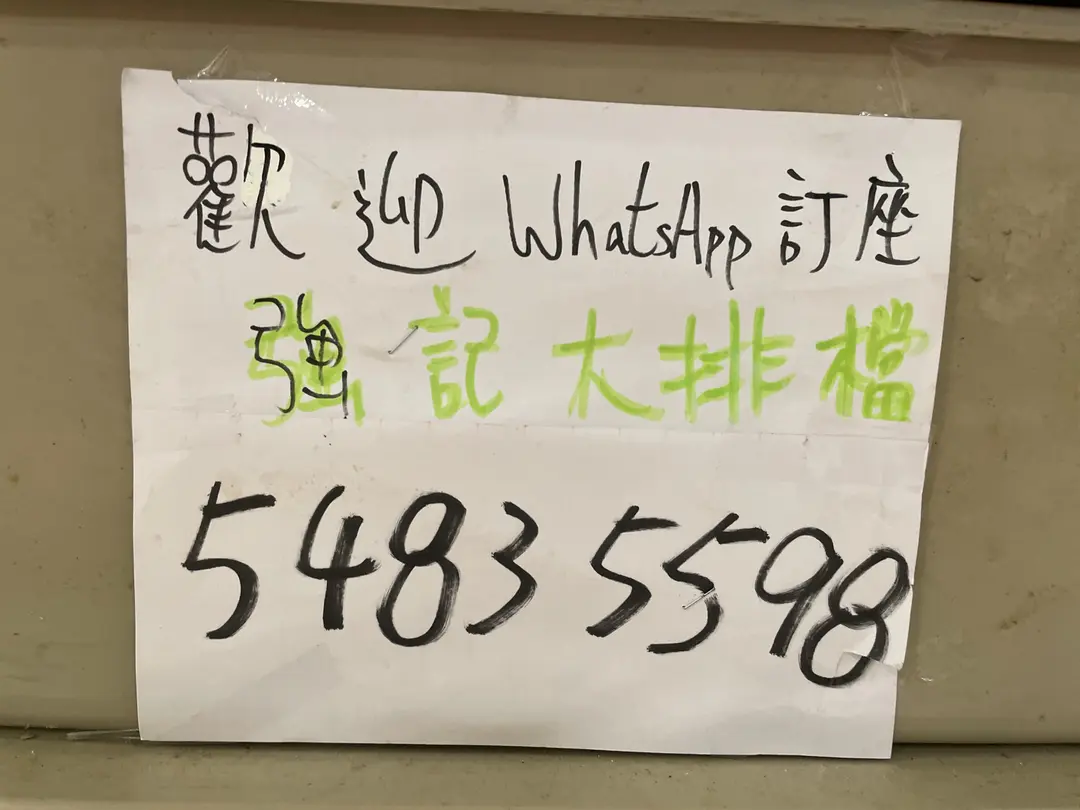 歡迎 WhatsApp 訂座
強記大排檔
5483 5598